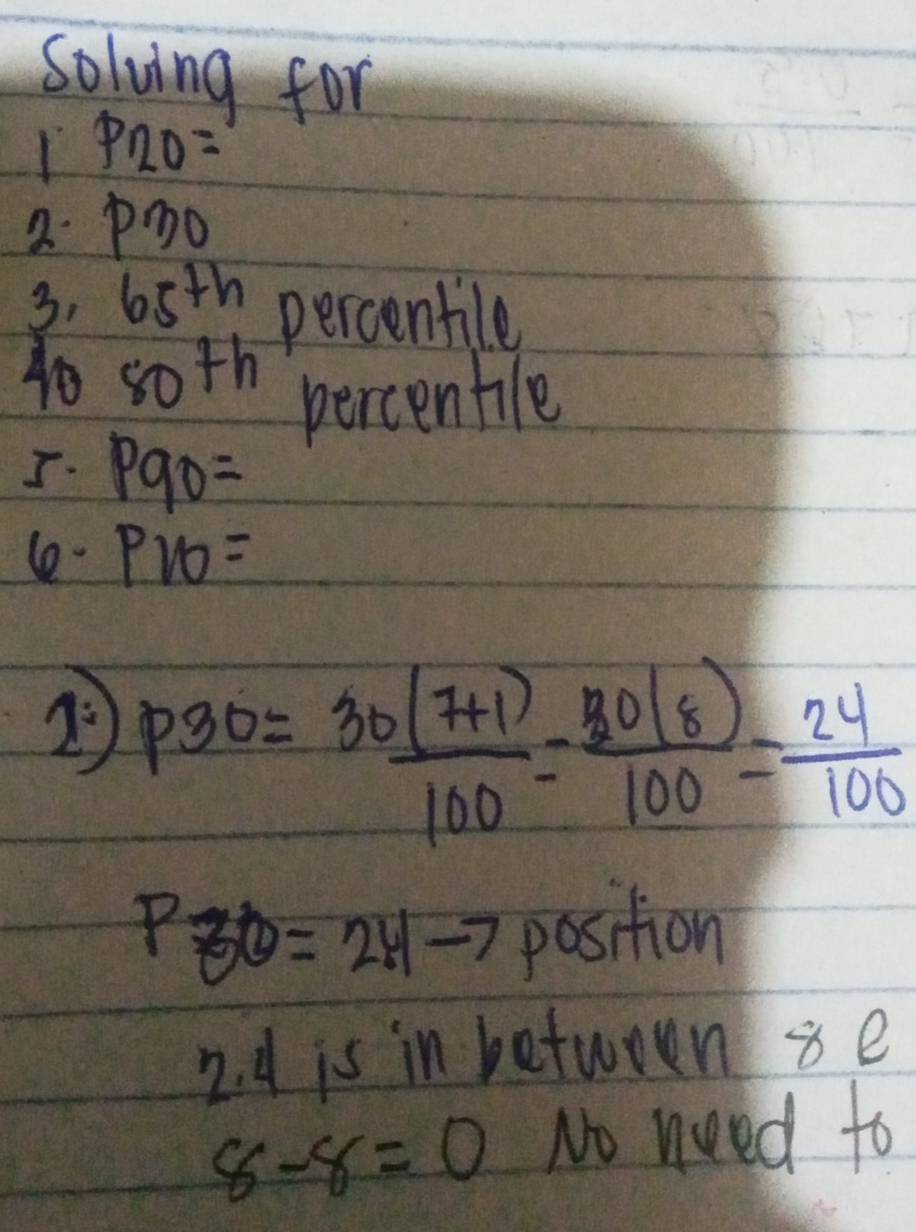 Solving for
1 P20=
2. P30
3. 65th percentile
40 80th percentile
5. P90=
6. P10=
2.) P30= 30(7+1)/100 = 30(8)/100 = 24/100
P30= 2.4 -> position
2.4 is in between 8 e
8-8=0 No need to